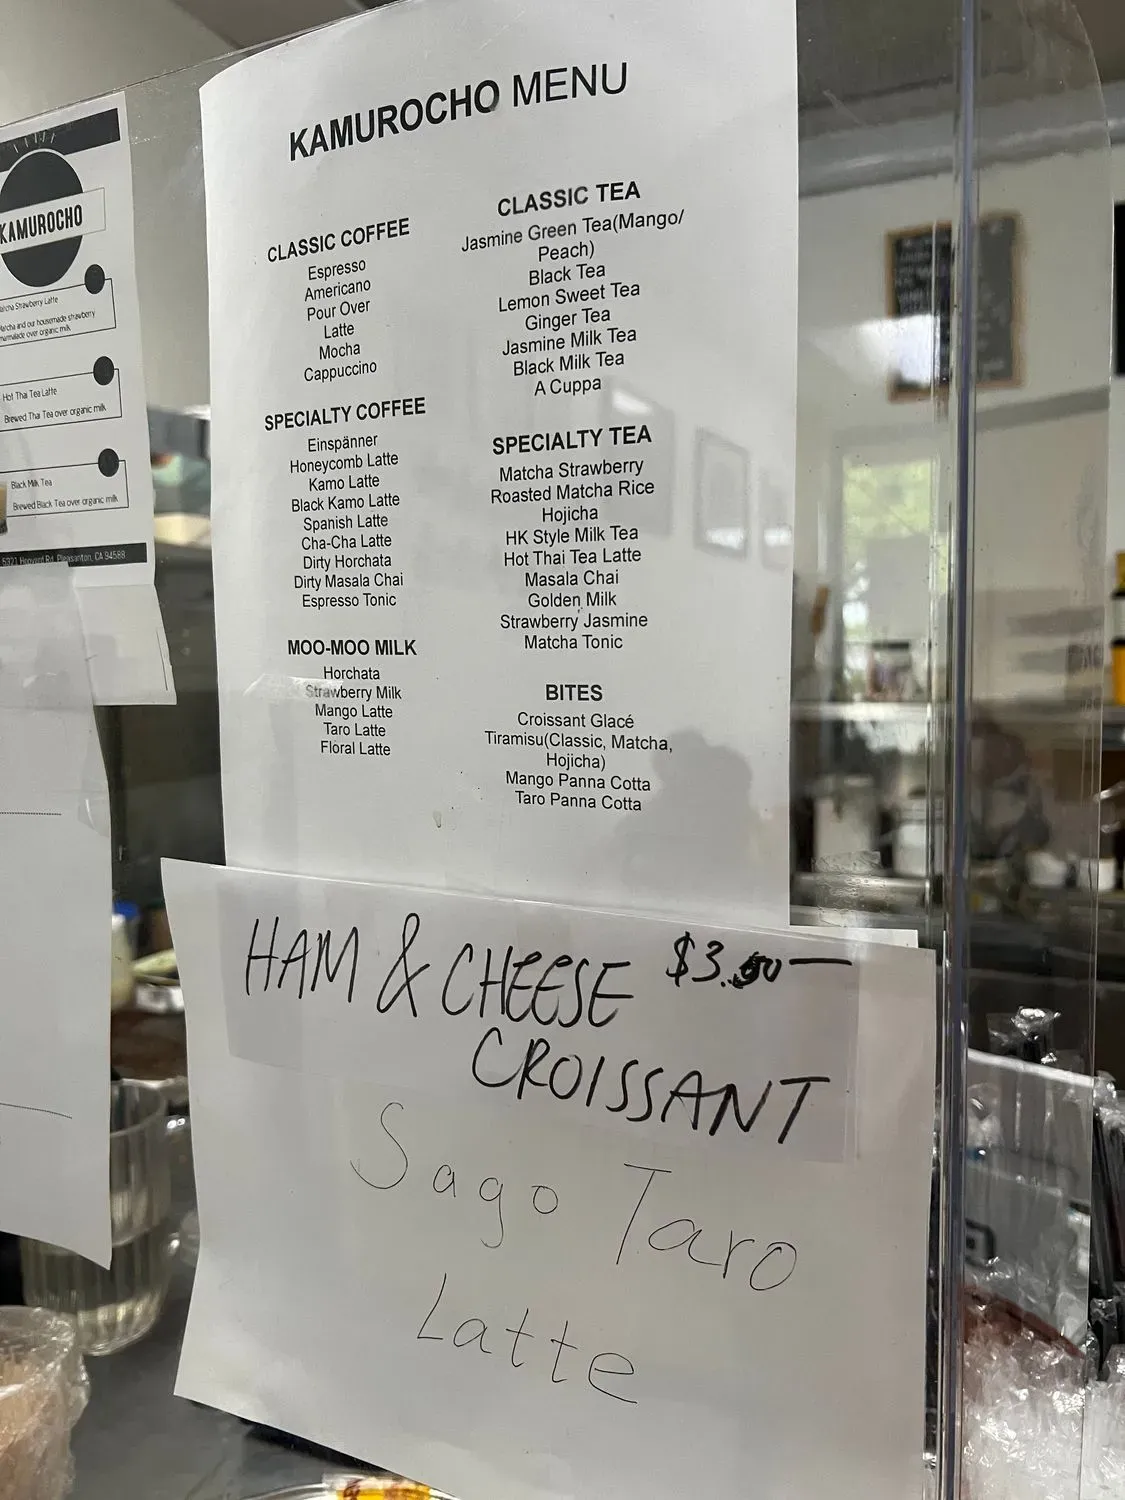 KAMUROCHO MENU
CLASSIC COFFEE
Espresso
Americano
Pour Over
Latte
Mocha
Cappuccino
SPECIALTY COFFEE
Einspänner
Honeycomb Latte
Kamo Latte
Black Kamo Latte
Spanish Latte
Cha-Cha Latte
Dirty Horchata
Dirty Masala Chai
Espresso Tonic
MOO-MOO MILK
Horchata
Strawberry Milk
Mango Latte
Taro Latte
Floral Latte
CLASSIC TEA
Jasmine Green Tea(Mango/
Peach)
Black Tea
Lemon Sweet Tea
Ginger Tea
Jasmine Milk Tea
Black Milk Tea
A Cuppa
SPECIALTY TEA
Matcha Strawberry
Roasted Matcha Rice
Hojicha
HK Style Milk Tea
Hot Thai Tea Latte
Masala Chai
Golden Milk
Strawberry Jasmine
Matcha Tonic
BITES
Croissant Glacé
Tiramisu(Classic, Matcha,
Hojicha)
Mango Panna Cotta
Taro Panna Cotta
HAM & CHEESE $3.50 —
CROISSANT
Sago Taro
Latte
KAMUROCHO
Strawberry Latte
and our housemade strawberry
marmalade over organic milk
Hot Thai Tea Latte
Brewed Thai Tea over organic milk
Black Milk Tea
Brewed Black Tea over organic milk
Hopyard Rd, Pleasanton, CA 94588